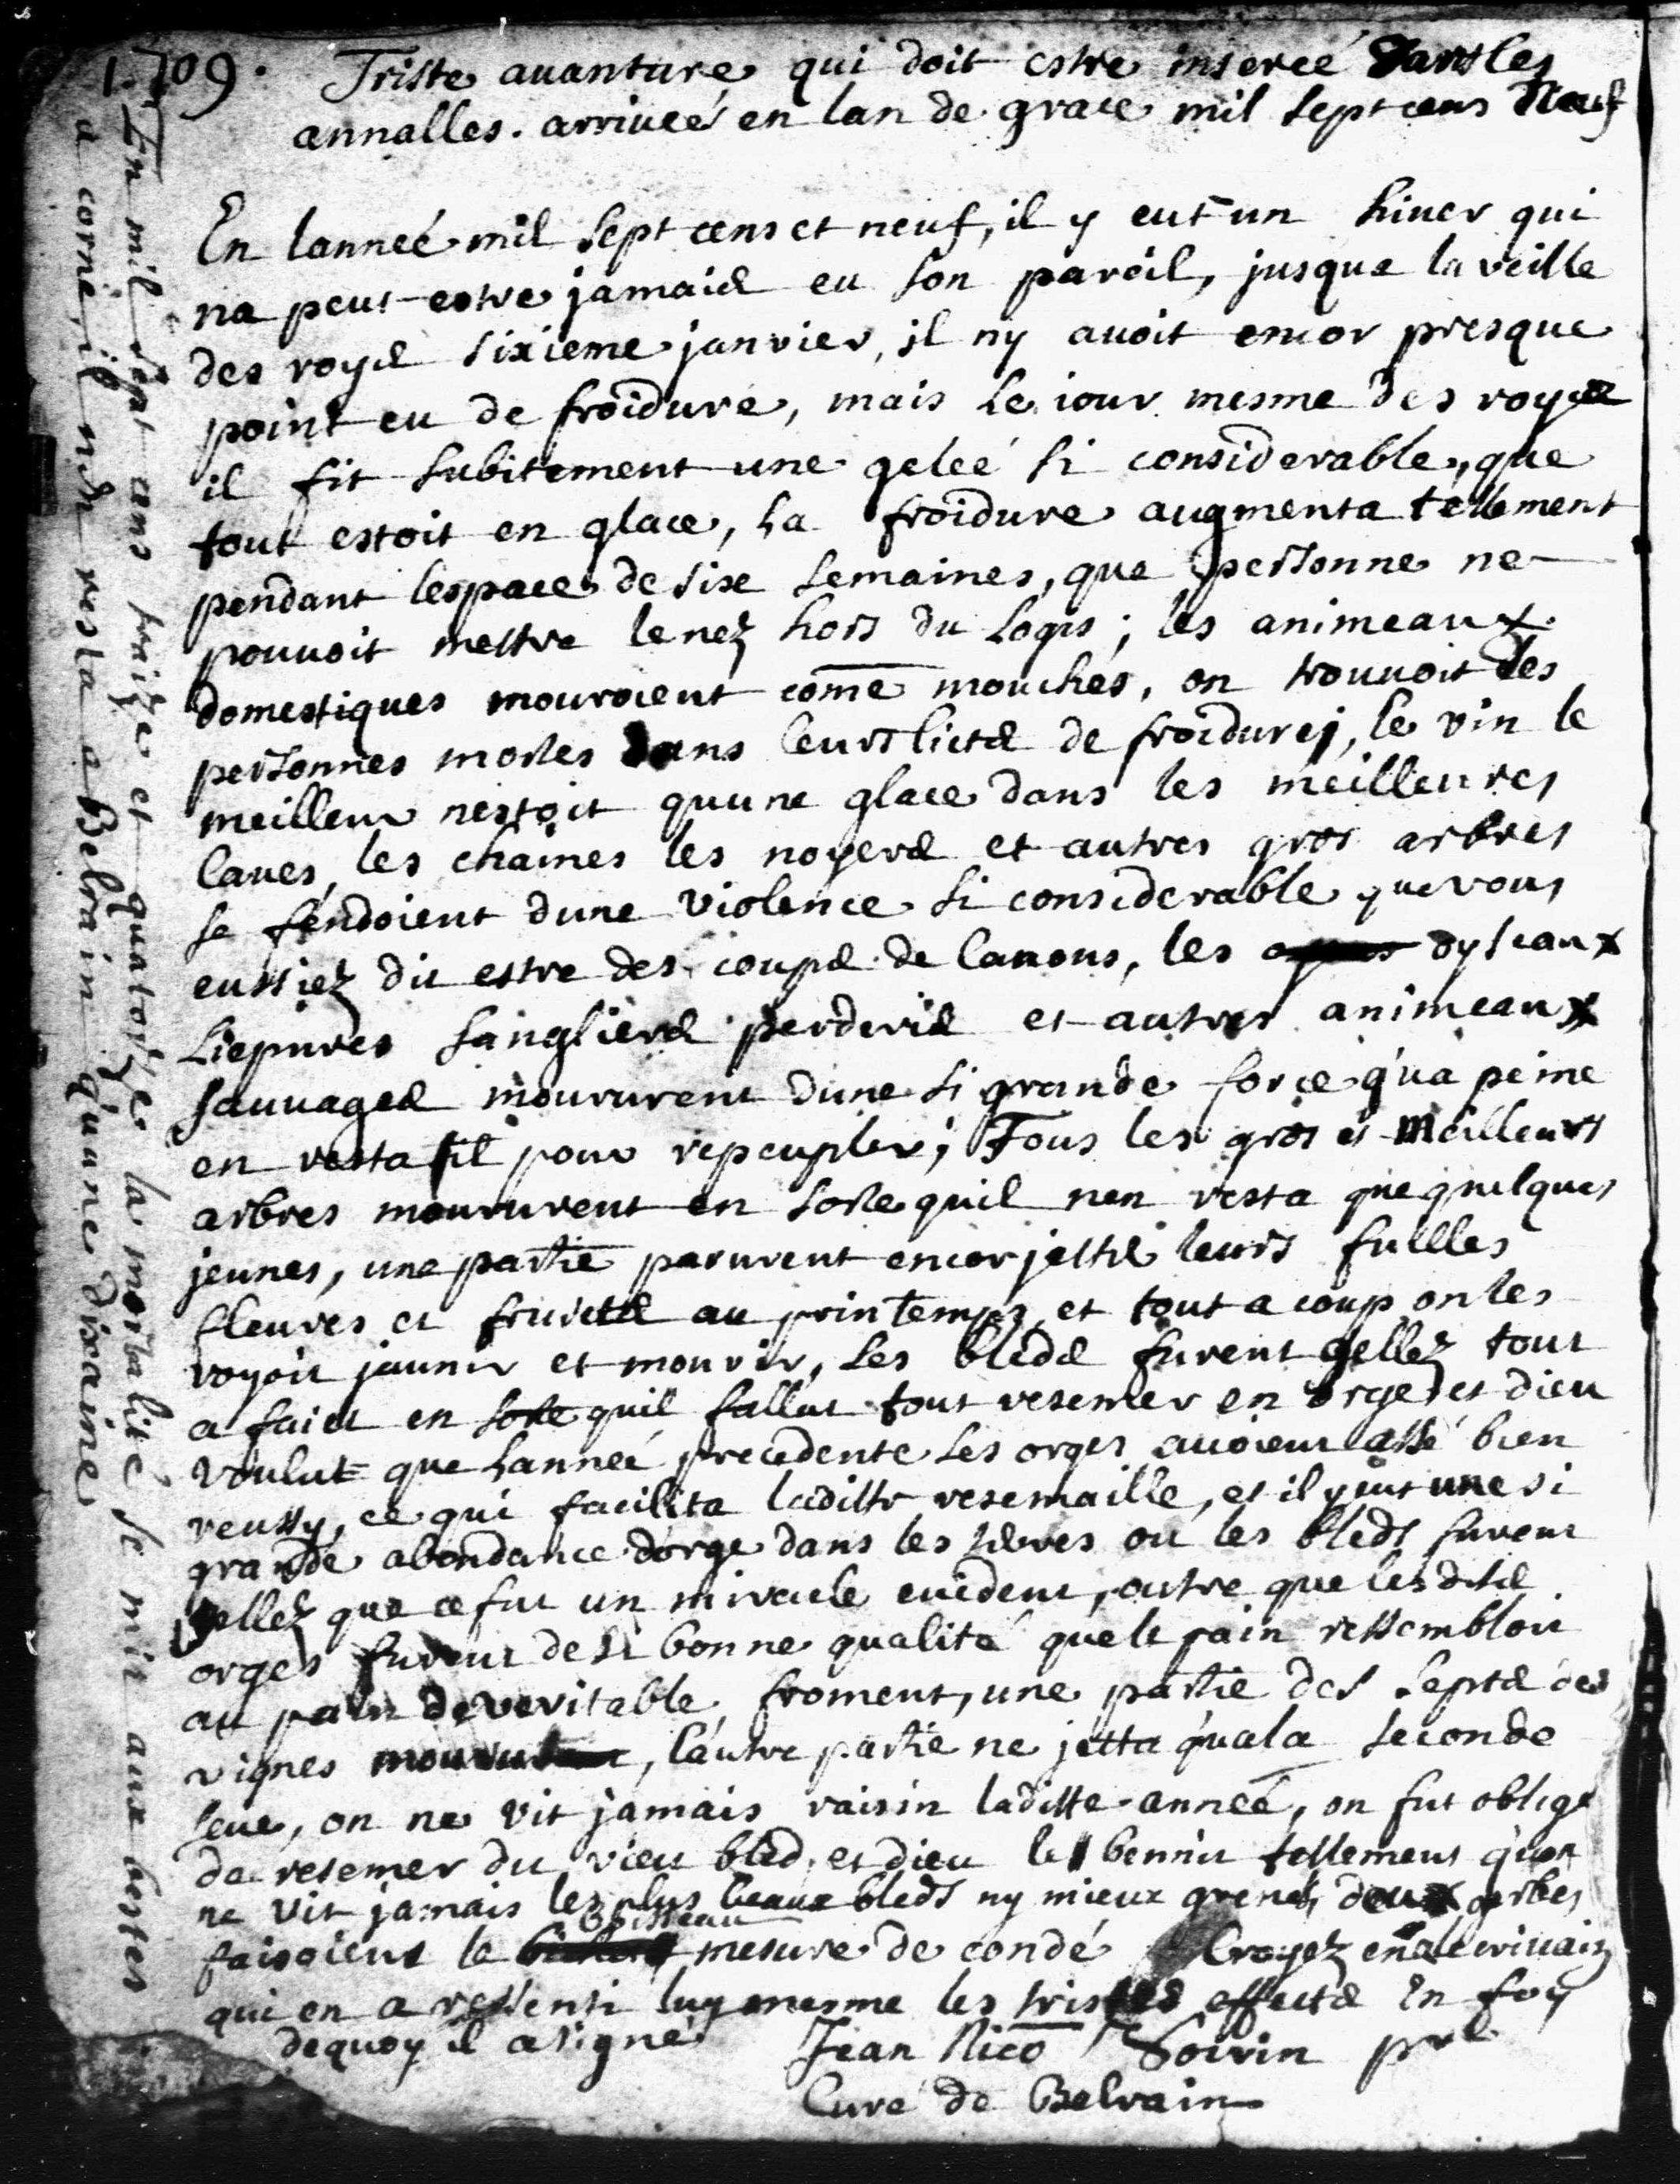 1709. Triste avanture qui doit estre inserée dans les
annalles. arrivée en lan de grace mil sept cens Neuf
En lanneé mil sept cens et neuf, il y eut un hiver qui
na peut-estre jamais eu son pareil, jusque la veille
des roys sixieme janvier, il ny avoit encor presque
point eu de froidure, mais le iour mesme des roys
il fit subitement une geleé si considerable, que
tout estoit en glace, la froidure augmenta tellement
pendant lespace de six semaines, que personne ne
pouvoit mettre le nez hors du logis; les animeaux
domestiques mouroient come mouches, on trouvoit des
personnes mortes dans leurs licts de froidure, le vin le
meilleur nestoit quune glace dans les meilleures
caves, les chaines les noyers et autres gros arbres
se fendoient dune violence si considerable que vous
eussiez dit estre des coups de canons, les oyseaux
liepvres sangliers perdris et autres animeaux
sauvages moururent dune si grande force qua peine
en resta til pour repeupler; Tous les gros et meilleurs
arbres moururent en sorte quil nen resta que quelques
jeunes, une partie parurent encor jetter leurs fuilles
fleures et fruicts au printemps, et tout a coup on les
voyoit jaunir et mourir, les bleds furent gellez tout
a faict en sorte quil fallut tout resemer en orge, et dieu
voulut que lanneé precedente les orges avoient assé bien
reussy, ce qui facilita laditte resemaille, et il y eut une si
grande abondance dorge dans les terres ou les bleds furent
gellez que ce fut un miracle evident, outre que lesdits
orges furent de si bonne qualité que le pain ressembloit
au pain de veritable froment, une partie des septs des
vignes moururent, lautre partie ne jetta quala seconde
seve, on ne vit jamais raisin laditte anneé, on fut oblige
de resemer du vieu bled, et dieu le bennit tellement quon
ne vit jamais les plus beaux bleds ny mieux grenés, deux gerbes
faisoient le boisseau mesure de condé Croyez en lecrivain
qui en a ressenti luy mesme les tristes effects En foy
dequoy il a signé Jean Nico Soirin pre
Curé de Belrain
En mil sept cens traize et quatorze la mortalité se mit aux bestes
a corne, il nen resta a Belrain q'une dixaine